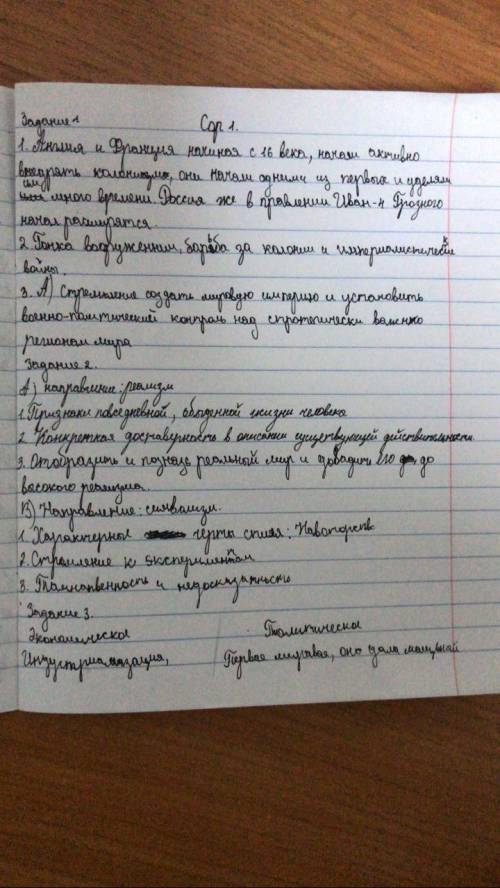 Задание 1
Сор 1.
1. Англия и Франция начиная с 16 века, начали активно
внедрять колониализм, они начали одними из первых и уделяли
им много времени. Россия же в правлении Иван-4 Грозного
начал расширятся.
2. Гонка вооружении, борьба за колонии и империалистические
войны.
3. А) Стремление создать мировую империю и установить
военно-политический контроль над стротегически важнко
регионам мира
Задание 2.
А) направление: реализм
1. Признаки повседневной, обыденной жизни человека
2. Конкретная доставурность в описании существующей действительности.
3. Отобразить и познать реальный мир и довадить его до
высокого реализма.
В) Направление: символизм.
1. Характерные черты стиля: Новаторство
2. Стремление к экспериментам
3. Таинственность и недосказанность
Задание 3.
Экономическое
Политическое
Индустриализация,
Первая мировая, она дала мощный